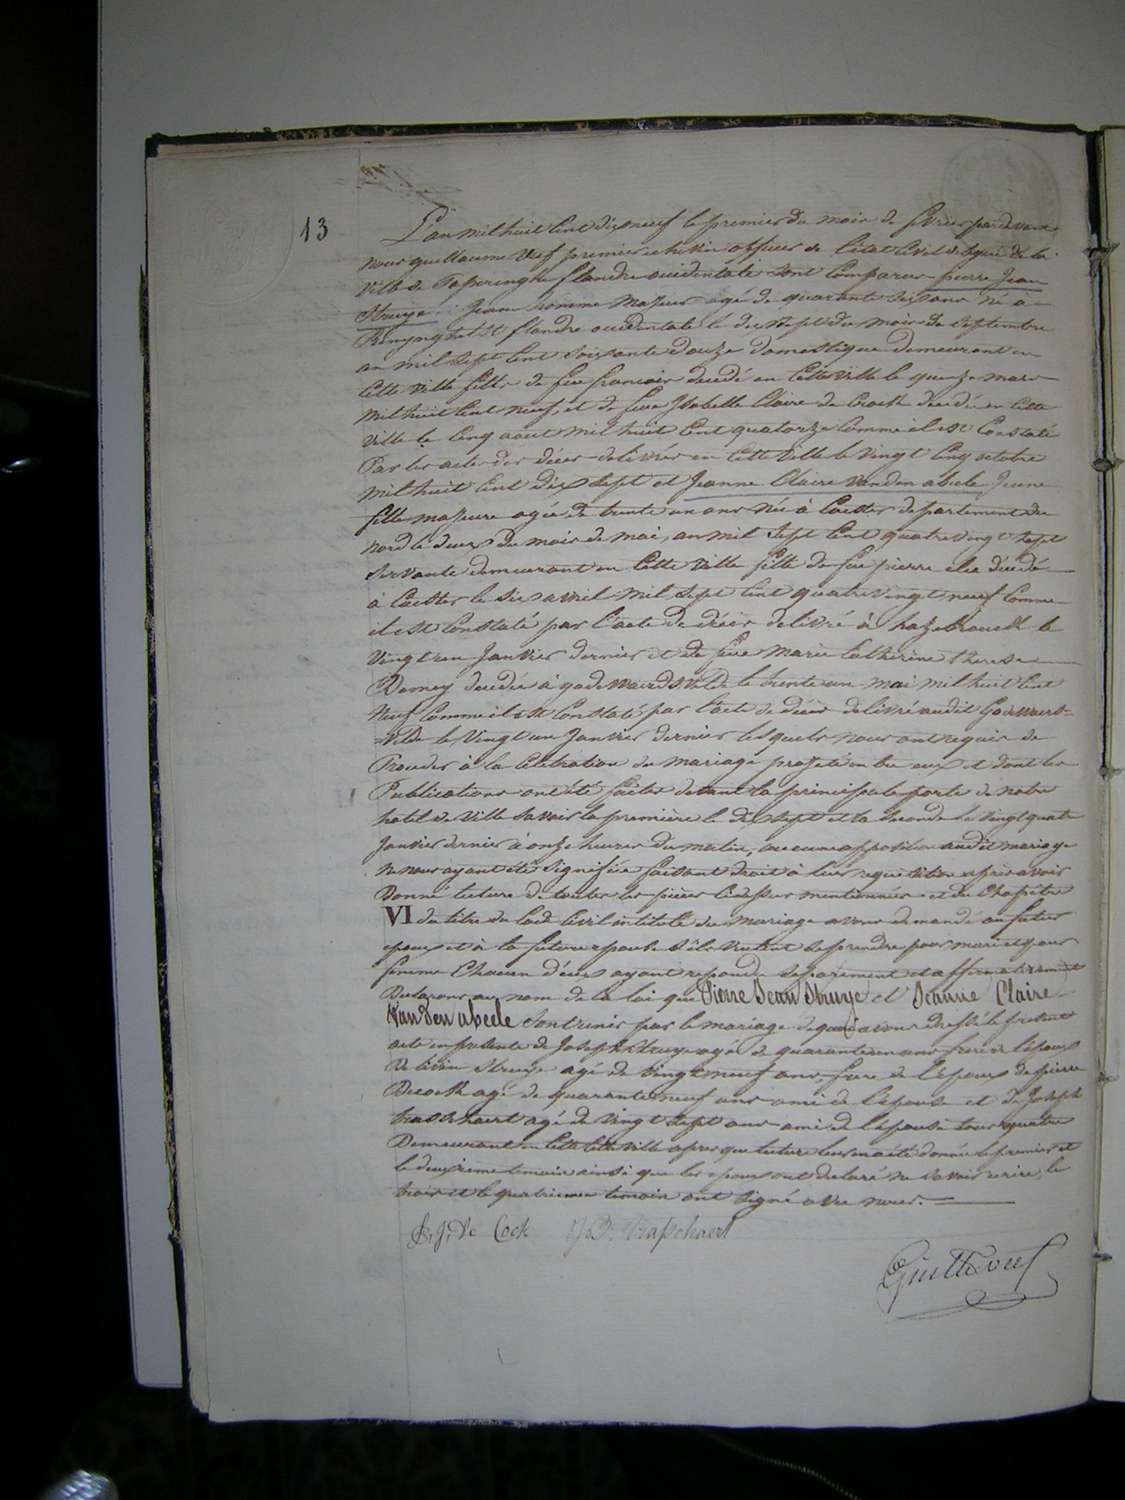 13
L'an mil huit cent dix neuf le premier du mois de fevrier par devant
nous guillaume Vuef premier echevin officier de l'etat Civil de la
Ville de Poperinghe flandre occidentale sont Comparus pierre Jean
Struye jeune homme Majeur agé de quarante six ans né a
flandre occidentale le dix sept du mois de Septembre
an mil sept Cent soixante douze domestique demeurant en
Cette Ville fils de feu francois decedé en Cette Ville le quinze mars
mil huit Cent neuf, et de feue Isabelle Claire de Cock decedée en Cette
Ville le Cinq aout mil huit Cent quatorze Comme il est Constaté
Par les actes de déces delivrés en Cette Ville le Vingt Cinq octobre
mil huit Cent dix sept et Jeanne Claire Vanden abeele Jeune
fille majeure agée de trente un ans née à Caester departement du
nord le deux du mois de mai, an mil sept Cent quatre vingt sept
Servante demeurant en Cette Ville fille de feu pierre decedé
à Caester le six avril mil sept Cent quatre vingt neuf Comme
il est Constaté par l'acte de déces delivré à hazebrouck le
Vingt un Janvier dernier et de feue Marie Catherine therese
Demey decedée à godewaersvelde le trente un mai mil huit Cent
Neuf Comme il est Constaté par l'acte de déces delivré audit Godewaers=
=velde le Vingt un Janvier dernier lesquels nous ont requis de
Proceder à la Celebration du mariage projeté entre eux et dont les
Publications ont été faites devant la principale porte de notre
hotel de Ville Savoir la première le dix sept et la Seconde le Vingt quatre
Janvier dernier à onze heures du matin, aucune opposition audit mariage
ne nous ayant été Signifiée faisant droit à leur requisition après avoir
Donné lecture de toutes les pièces Cidessus mentionnées et du Chapitre
VI du titre du Code Civil intitulé du Mariage avons demandé au futur
epoux et à la future epouse s'ils veulent se prendre pour mari et pour
femme Chacun d'eux ayant repondu separement et affirmativement
Declarons au nom de la loi que Pierre Jean Struye et Jeanne Claire
Vanden abeele Sont unis par le mariage de quoi avons dressé le present
acte en presence de Joseph Struye agé de quarante un ans frere de l'epoux
De livin Struye agé de Vingt neuf ans, frere de l'epoux de pierre
Decock agé de quarante neuf ans ami de l'epouse et de Joseph
traschaert agé de Vingt sept ans ami de l'epouse tous quatre
Demeurant en Cette Ville apres que lecture leur a été donnée le premier et
le deuxieme temoin ainsi que les epoux ont declaré ne Savoir ecrire, le
trois et le quatrieme temoin ont Signé avec nous.
P. J. De Cock J. B. Traschaert
Guill Vuef